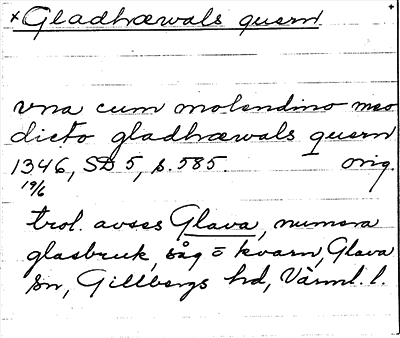 ×Gladhæwals quern
vna cum molendino meo
dicto gladhæwals quern
1346, SD 5, s. 585. orig.
19/6
trol. avses Glava, numera
glasbruk, såg o kvarn, Glava
sn, Gillbergs hd, Värml. l.